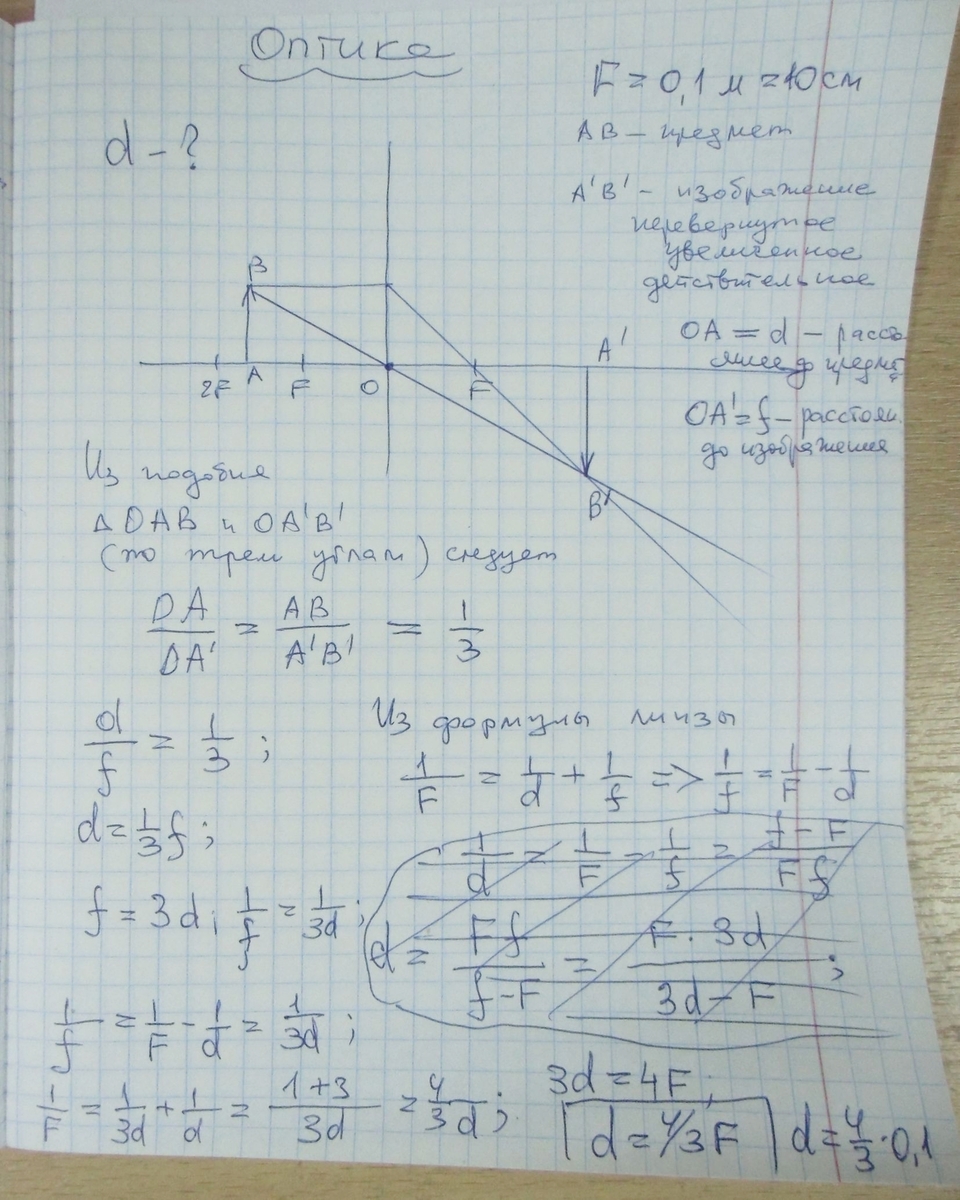 Оптика
F = 0,1 м = 10 см
d - ?
AB - предмет
A'B' - изображение
перевернутое
увеличенное
действительное
OA = d - расстояние до предмета
OA' = f - расстоян.
до изображения
B
A'
2F A F O F
B'
Из подобия
Δ OAB и OA'B'
(по трем углам) следует
OA/OA' = AB/A'B' = 1/3
d/f = 1/3 ;
Из формулы линзы
1/F = 1/d + 1/f => 1/f = 1/F - 1/d
d = 1/3 f ;
1/d = 1/F - 1/f = f - F / F f
f = 3d ; 1/f = 1/3d ;
d = F f / f - F = F · 3d / 3d - F ;
1/f = 1/F - 1/d = 1/3d ;
1/F = 1/3d + 1/d = 1 + 3 / 3d = 4/3d ;
3d = 4F ;
d = 4/3 F
d = 4/3 · 0,1